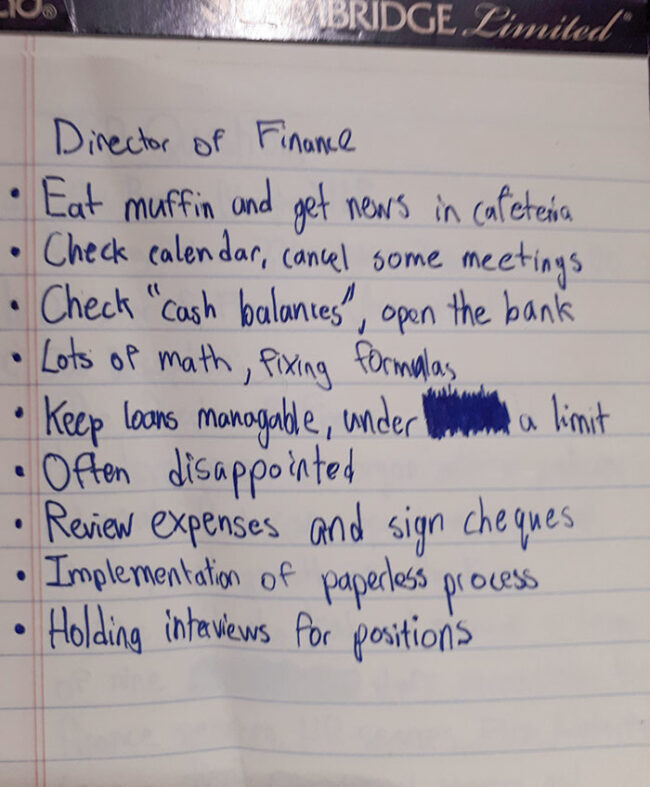 BRIDGE Limited
Director of Finance
• Eat muffin and get news in cafeteria
• Check calendar, cancel some meetings
• Check "cash balances", open the bank
• Lots of math, fixing formulas
• Keep loans managable, under a limit
• Often disappointed
• Review expenses and sign cheques
• Implementation of paperless process
• Holding interviews for positions